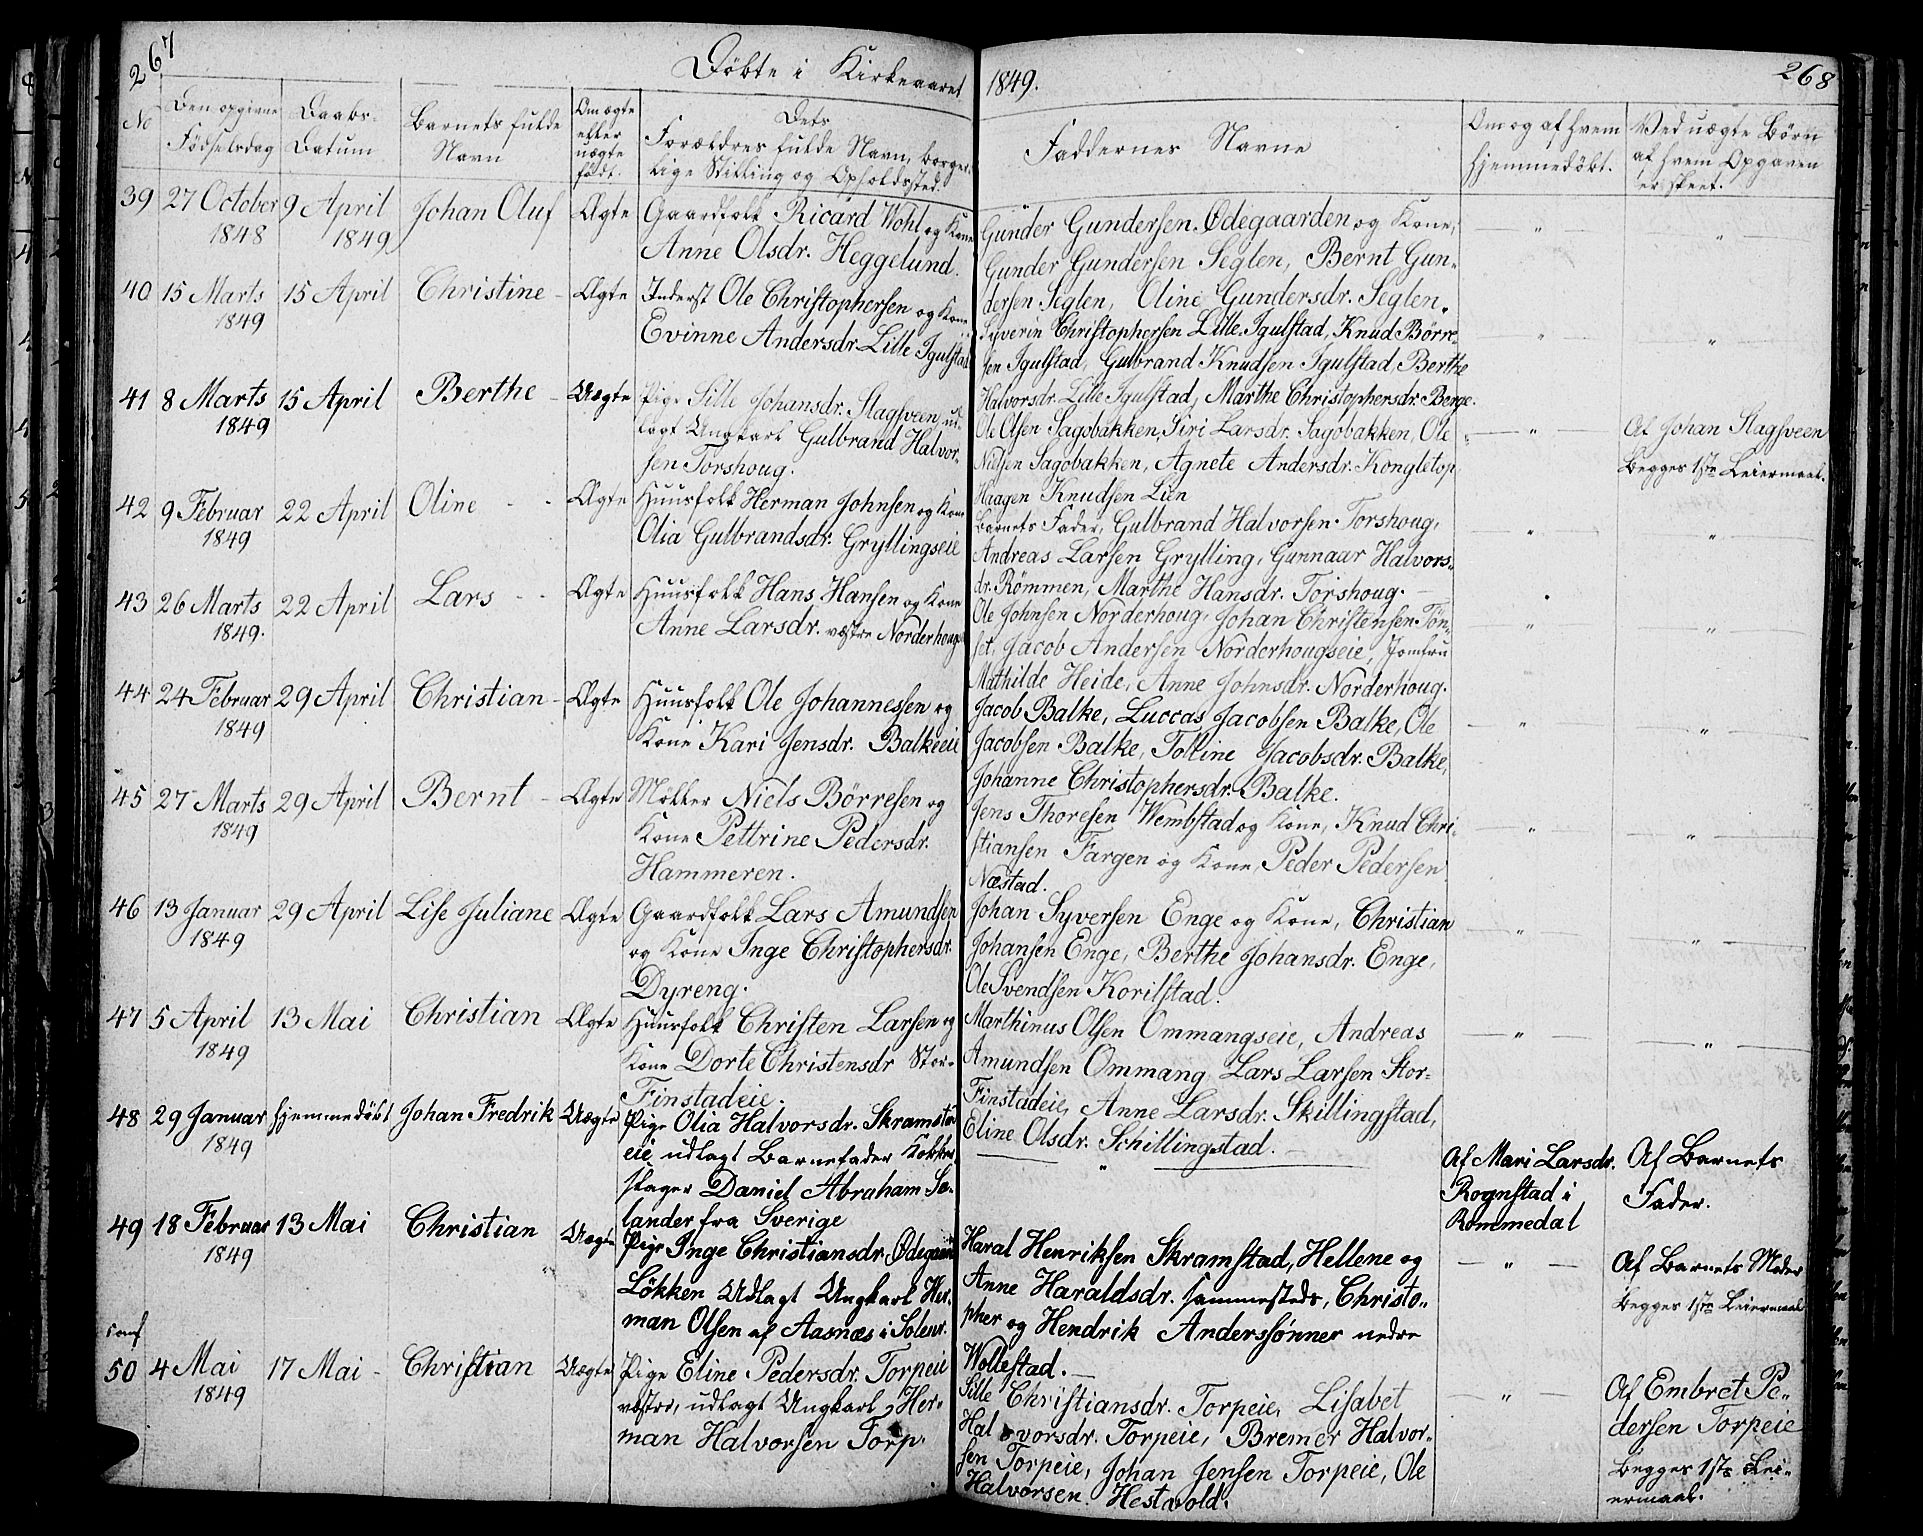 267
Döbte i Kirkeaaret
1849.
268
No
Den opgivne Födselsdag
Daabs-Datum
Barnets fulde Navn
Om ægte eller uægte födt.
Dets Forældres fulde Navn, borgerlige Stilling og Opholdssted.
Faddernes Navne
Om og af hvem hjemmedöbt.
Ved uægte Börn af hvem Opgaven er skeet.
39 27 October 1848 9 April 1849 Johan Oluf Ægte
Gaardfolk Ricard Wohl og Kone
Anne Olsdr. Heggelund.
Gunder Gundersen Ødegaarden og Kone,
Gunder Gundersen Seglen, Bernt Gun-
dersen Seglen, Oline Gundersdr. Seglen.
40 15 Marts 1849 15 April Christine - Ægte
Inderst Ole Christophersen og Kone
Evinne Andersdr. Lille Igulstad
Syverin Christophersen Lille Igulstad, Knud Börre-
sen Igulstad, Gulbrand Knudsen Igulstad, Berthe
Halvorsdr. Lille Igulstad, Marthe Christophersdr. Berge.
41 8 Marts 1849 15 April Berthe - Uægte
Pige Sille Johansdr. Slagsveen, ud-
lagt Ungkarl Gulbrand Halvor-
sen Torshoug.
Ole Olsen Sagobakken, Siri Larsdr. Sagobakken, Ole
Nielsen Sagobakken, Agnete Andersdr. Kongletop
Haagen Knudsen Lien
Af Johan Slagsveen
begges 1ste Leiermaal.
42 9 Februar 1849 22 April Oline - - Ægte
Huusfolk Herman Johnsen og Kone
Olia Gulbrandsdr. Gryllingseie
Barnets Fader, Gulbrand Halvorsen Torshoug,
Andreas Larsen Grylling, Gunnaar Halvors-
dr. Römmen, Marthe Hansdr. Torshoug.
43 26 Marts 1849. 22 April Lars - - Ægte
Huusfolk Hans Hansen og Kone
Anne Larsdr. vestre Norderhoug
Ole Johnsen Norderhoug, Johan Christensen Tön-
set, Jacob Andersen Norderhougseie, Jomfru
Mathilde Heide, Anne Johnsdr. Norderhoug.
44 24 Februar 1849 29 April Christian - Ægte
Huusfolk Ole Johannessen og
Kone Kari Jensdr. Balkeeie
Jacob Balke, Luccas Jacobsen Balke, Ole
Jacobsen Balke, Tolline Jacobsdr. Balke,
Johanne Christophersdr. Balke.
45 27 Marts 1849 29 April Bernt - Ægte
Möller Niels Börresen og
Kone Pettrine Pedersdr.
Hammeren.
Jens Thoresen Wembstad og Kone, Knud Chri-
stiansen Fargen og Kone, Peder Pedersen
Næstad.
46 13 Januar 1849 29 April Lise Juliane Ægte
Gaardfolk Lars Amundsen
og Kone Inge Christophersdr.
Dyreng.
Johan Syversen Enge og Kone, Christian
Johansen Enge, Berthe Johansdr. Enge,
Ole Svendsen Korilstad.
47 5 April 1849 13 Mai Christian Ægte
Huusfolk Christen Larsen og
Kone Dorte Christensdr Stor-
Finstadeie.
Marthinus Olsen Ommangseie, Andreas
Amundsen Ommang, Lars Larsen Stor-
Finstadeie, Anne Larsdr. Skillingstad,
Eline Olsdr. Schillingstad.
48 29 Januar 1849 hjemmedöbt Johan Fredrik Uægte
Pige Olia Halvorsdr. Skramstad
eie udlagt Barnefader Kobber-
slager Daniel Abraham Se-
lander fra Sverige
Af Mari Larsdr.
Rognstad i
Rommedal
Af Barnets
Fader.
49 18 Februar 1849 13 Mai Christian Uægte
Pige Inge Christiansdr. Ødegaard
Løkken Udlagt Ungkarl Her-
man Olsen af Aasnæs i Soleur.
Haral Henriksen Skramstad, Hellene og
Anne Haraldsdr. sammesteds, Christo-
pher og Hendrik Anderssönner nedre
Wollestad.
Af Barnets Moder
begges 1ste Leiermaal
conf
50 4 Mai 1849 17 Mai - Christian Uægte
Pige Eline Pedersdr. Torpeie
vestre, udlagt Ungkarl Her-
man Halvorsen Torp.
Sille Christiansdr. Torpeie, Lisabet
Halvorsdr. Torpeie, Bremer Halvor-
sen Torpeie, Johan Jensen Torpeie, Ole
Halvorsen Hestvold.
Af Embret Pe-
dersen Torpeie
begges 1ste Lei-
ermaal.